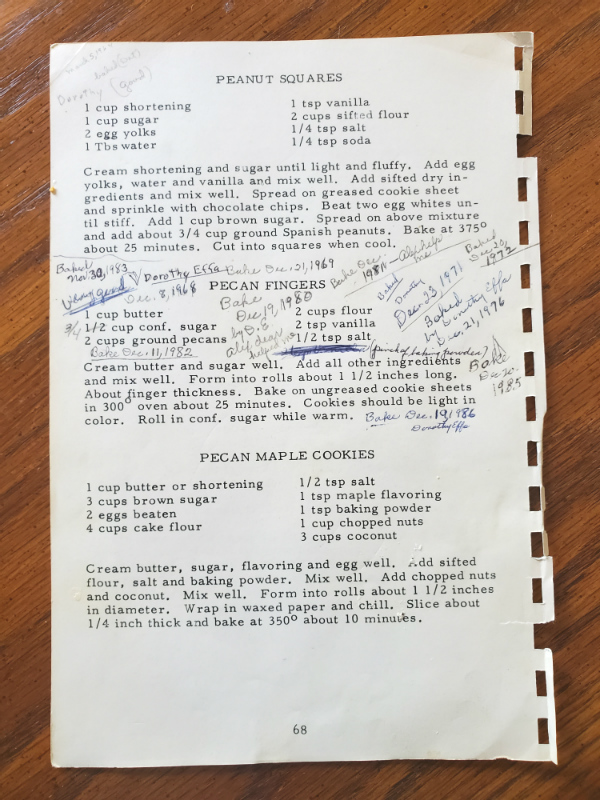 baked (nut)
Dorothy (good)
PEANUT SQUARES
1 cup shortening
1 cup sugar
2 egg yolks
1 Tbs water
1 tsp vanilla
2 cups sifted flour
1/4 tsp salt
1/4 tsp soda
Cream shortening and sugar until light and fluffy. Add egg
yolks, water and vanilla and mix well. Add sifted dry in-
gredients and mix well. Spread on greased cookie sheet
and sprinkle with chocolate chips. Beat two egg whites un-
til stiff. Add 1 cup brown sugar. Spread on above mixture
and add about 3/4 cup ground Spanish peanuts. Bake at 375°
about 25 minutes. Cut into squares when cool.
Baked
Nov. 30, 1983
Very good
Dorothy Effa
Dec. 8, 1968
Bake Dec. 21, 1969
Bake Dec.
1981
me
Baked
Dec 20,
1972
Baked
Dorothy
Dec. 23, 1971
PECAN FINGERS
Bake
Dec. 19, 1980
by D.E.
helped me
Baked
by Dorothy Effa
Dec. 21, 1976
1 cup butter
3/4 1/2 cup conf. sugar
2 cups ground pecans
2 cups flour
2 tsp vanilla
1/2 tsp salt
(pinch of baking powder)
Bake Dec. 11, 1982
Bake
Dec 20-
1985
Cream butter and sugar well. Add all other ingredients
and mix well. Form into rolls about 1 1/2 inches long.
About finger thickness. Bake on ungreased cookie sheets
in 300° oven about 25 minutes. Cookies should be light in
color. Roll in conf. sugar while warm. Bake Dec. 19, 1986
Dorothy Effa
PECAN MAPLE COOKIES
1 cup butter or shortening
3 cups brown sugar
2 eggs beaten
4 cups cake flour
1/2 tsp salt
1 tsp maple flavoring
1 tsp baking powder
1 cup chopped nuts
3 cups coconut
Cream butter, sugar, flavoring and egg well. Add sifted
flour, salt and baking powder. Mix well. Add chopped nuts
and coconut. Mix well. Form into rolls about 1 1/2 inches
in diameter. Wrap in waxed paper and chill. Slice about
1/4 inch thick and bake at 350° about 10 minutes.
68